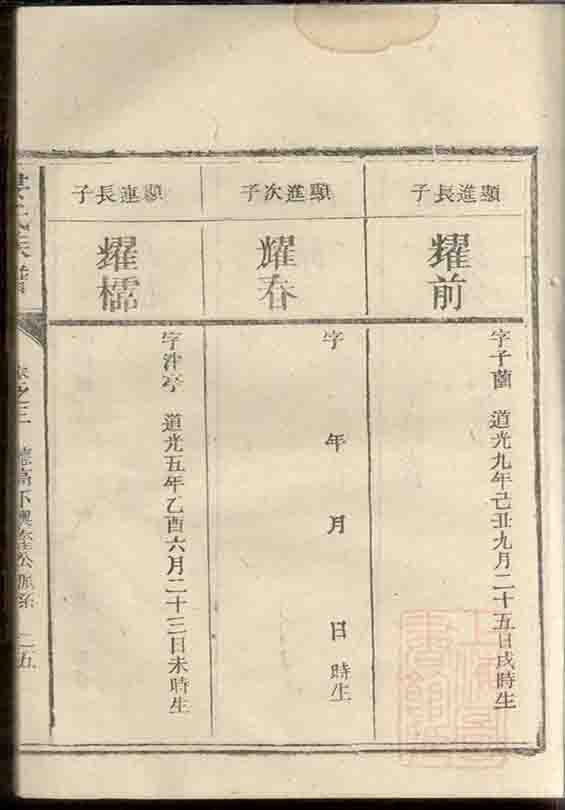 顯進長子
耀前
字子蘭 道光九年己丑九月二十五日戌時生
顯進次子
耀春
字 年 月 日 時生
顯連長子
耀檽
字沖亭 道光五年乙酉六月二十三日未時生
族譜
卷之三
公派系
二五